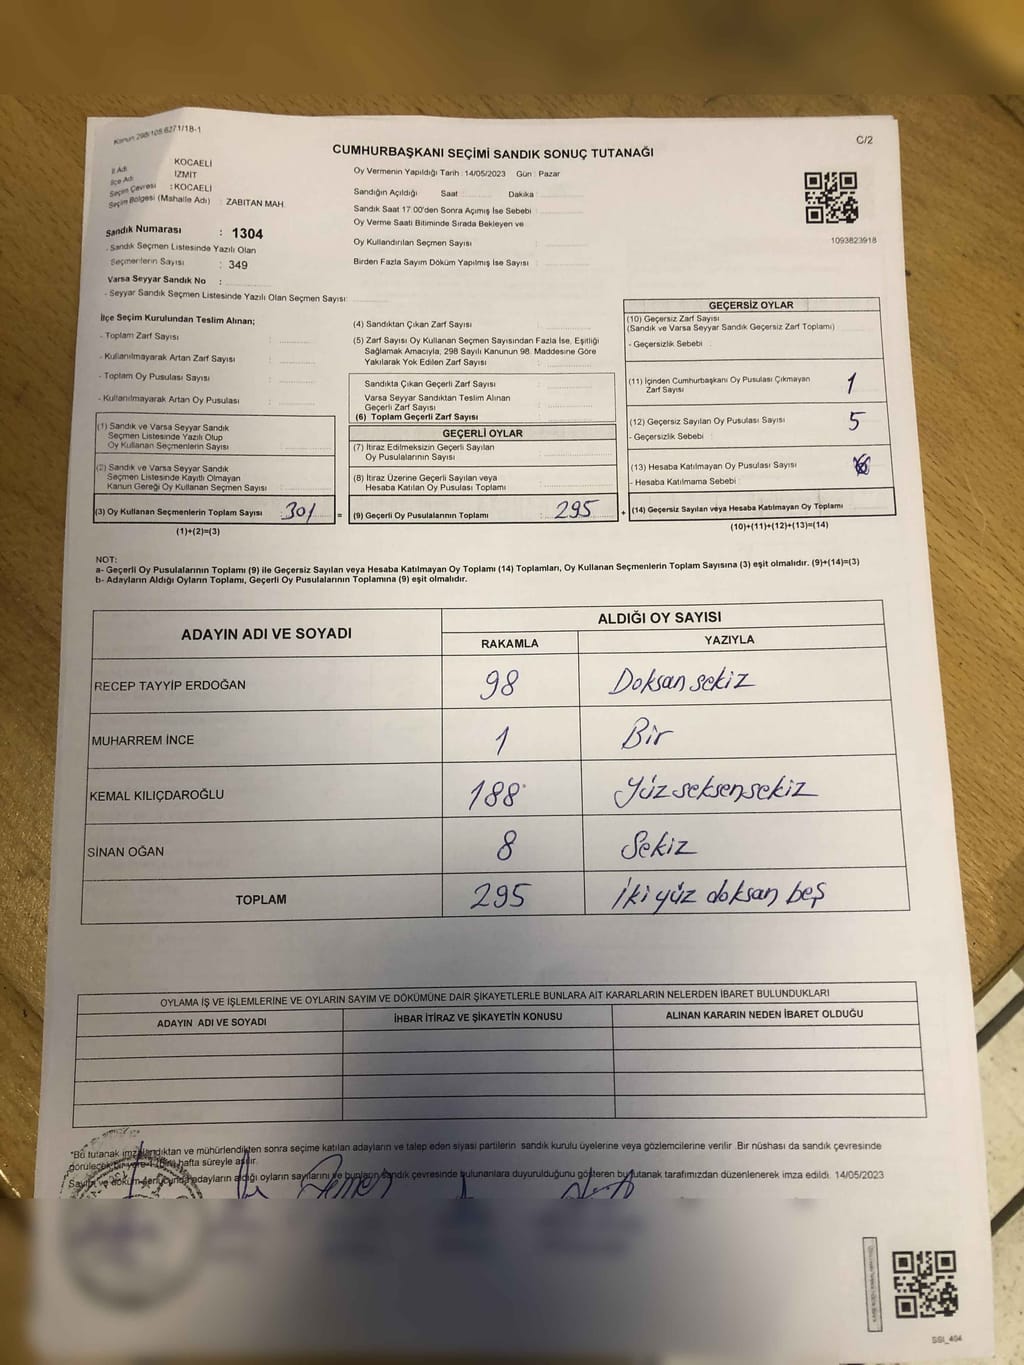 Kanun 298/105 6271/18-1
C/2
CUMHURBAŞKANI SEÇİMİ SANDIK SONUÇ TUTANAĞI
İl Adı KOCAELİ
İlçe Adı İZMİT
Seçim Çevresi : KOCAELİ
Seçim Bölgesi (Mahalle Adı) : ZABITAN MAH.
Sandık Numarası : 1304
- Sandık Seçmen Listesinde Yazılı Olan
Seçmenlerin Sayısı : 349
Varsa Seyyar Sandık No :
- Seyyar Sandık Seçmen Listesinde Yazılı Olan Seçmen Sayısı:
Oy Vermenin Yapıldığı Tarih : 14/05/2023 Gün : Pazar
Sandığın Açıldığı Saat Dakika :
Sandık Saat 17.00'den Sonra Açımış İse Sebebi :
Oy Verme Saati Bitiminde Sırada Bekleyen ve
Oy Kullandırılan Seçmen Sayısı :
Birden Fazla Sayım Döküm Yapılmış İse Sayısı :
1093823918
İlçe Seçim Kurulundan Teslim Alınan;
- Toplam Zarf Sayısı :
- Kullanılmayarak Artan Zarf Sayısı :
- Toplam Oy Pusulası Sayısı :
- Kullanılmayarak Artan Oy Pusulası :
(1) Sandık ve Varsa Seyyar Sandık
Seçmen Listesinde Yazılı Olup
Oy Kullanan Seçmenlerin Sayısı :
(2) Sandık ve Varsa Seyyar Sandık
Seçmen Listesinde Kayıtlı Olmayan
Kanun Gereği Oy Kullanan Seçmen Sayısı :
(3) Oy Kullanan Seçmenlerin Toplam Sayısı : 301 =
(1)+(2)=(3)
(4) Sandıktan Çıkan Zarf Sayısı :
(5) Zarf Sayısı Oy Kullanan Seçmen Sayısından Fazla İse, Eşitliği
Sağlamak Amacıyla, 298 Sayılı Kanunun 98. Maddesine Göre
Yakılarak Yok Edilen Zarf Sayısı :
Sandıkta Çıkan Geçerli Zarf Sayısı :
Varsa Seyyar Sandıktan Teslim Alınan
Geçerli Zarf Sayısı :
(6) Toplam Geçerli Zarf Sayısı
GEÇERLİ OYLAR
(7) İtiraz Edilmeksizin Geçerli Sayılan
Oy Pusulalarının Sayısı :
(8) İtiraz Üzerine Geçerli Sayılan veya
Hesaba Katılan Oy Pusulası Toplamı :
(9) Geçerli Oy Pusulalarının Toplamı : 295 +
GEÇERSİZ OYLAR
(10) Geçersiz Zarf Sayısı
(Sandık ve Varsa Seyyar Sandık Geçersiz Zarf Toplamı)
- Geçersizlik Sebebi :
(11) İçinden Cumhurbaşkanı Oy Pusulası Çıkmayan
Zarf Sayısı 1
(12) Geçersiz Sayılan Oy Pusulası Sayısı 5
- Geçersizlik Sebebi :
(13) Hesaba Katılmayan Oy Pusulası Sayısı
- Hesaba Katılmama Sebebi :
(14) Geçersiz Sayılan veya Hesaba Katılmayan Oy Toplamı
(10)+(11)+(12)+(13)=(14)
NOT:
a- Geçerli Oy Pusulalarının Toplamı (9) ile Geçersiz Sayılan veya Hesaba Katılmayan Oy Toplamı (14) Toplamları, Oy Kullanan Seçmenlerin Toplam Sayısına (3) eşit olmalıdır. (9)+(14)=(3)
b- Adayların Aldığı Oyların Toplamı, Geçerli Oy Pusulalarının Toplamına (9) eşit olmalıdır.
ADAYIN ADI VE SOYADI ALDIĞI OY SAYISI
RAKAMLA YAZIYLA
RECEP TAYYİP ERDOĞAN 98 Doksan sekiz
MUHARREM İNCE 1 Bir
KEMAL KILIÇDAROĞLU 188 Yüz seksen sekiz
SİNAN OĞAN 8 Sekiz
TOPLAM 295 İki yüz doksan beş
OYLAMA İŞ VE İŞLEMLERİNE VE OYLARIN SAYIM VE DÖKÜMÜNE DAİR ŞİKAYETLERLE BUNLARA AİT KARARLARIN NELERDEN İBARET BULUNDUKLARI
ADAYIN ADI VE SOYADI İHBAR İTİRAZ VE ŞİKAYETİN KONUSU ALINAN KARARIN NEDEN İBARET OLDUĞU
*Bu tutanak imzalandıktan ve mühürlendikten sonra seçime katılan adayların ve talep eden siyasi partilerin sandık kurulu üyelerine veya gözlemcilerine verilir. Bir nüshası da sandık çevresinde
görülecek bir yere 1 hafta süreyle asılır.
Sayım ve döküm sonucunda adayların aldığı oyların sayılarını ve bunların sandık çevresinde bulunanlara duyurulduğunu gösteren bu tutanak tarafımızdan düzenlenerek imza edildi. 14/05/2023
SSI_404